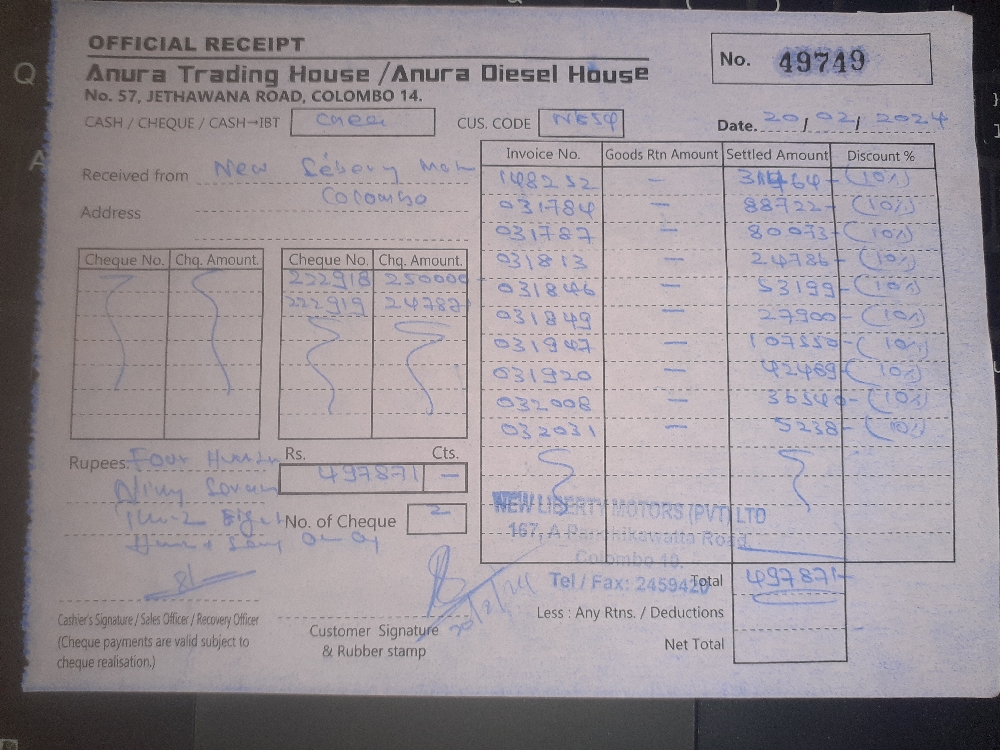 OFFICIAL RECEIPT
No. 49749
Anura Trading House /Anura Diesel House
No. 57, JETHAWANA ROAD, COLOMBO 14.
CASH / CHEQUE / CASH→IBT
CUS. CODE
Date. 20/02/2024
Received from New
Address Colombo
Invoice No. Goods Rtn Amount Settled Amount Discount %
148252 — (10%)
031784 — 88722- (10%)
031787 — 80073- (10%)
031813 — 24786- (10%)
031846 — 53199- (10%)
031849 — 27900- (10%)
031947 — 107550- (10%)
031920 — 42489- (10%)
032008 — 36540- (10%)
032031 — 5238- (10%)
Cheque No. Chq. Amount. Cheque No. Chq. Amount.
222918 250000-
222919 247871
Rupees. Four
Rs. Cts.
497871 —
No. of Cheque 2
NEW LIBERTY MOTORS (PVT) LTD
167, A Panchikawatta Road,
Colombo 10.
Tel / Fax: 2459420
Total 497871-
Less : Any Rtns. / Deductions
Net Total
Cashier's Signature / Sales Officer / Recovery Officer
(Cheque payments are valid subject to
cheque realisation.)
Customer Signature
& Rubber stamp